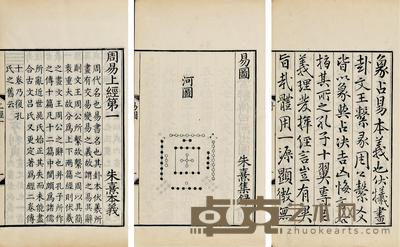 象占易本義也伏羲畫
卦文王繫彖周公繫爻
皆以象與占決吉凶悔吝
其所之孔子十翼專用
義理發揮經言豈有異
旨哉體用一源顯微無
易圖
朱熹集錄
河圖
周易上經第一
朱熹本義
周代名也易書名也其卦本伏羲所
畫有交易變易之義故謂之易其辭
則文王周公所繫故繫之周以其簡
袠重大故分為上下兩篇經則伏羲
之畫文王周公之辭也并孔子所作
之傳十篇凡十二篇中間頗為諸儒
所亂近世晁氏始正其失而未能盡
合古文呂氏又更定著為經二卷傳
十卷乃復孔
氏之舊云